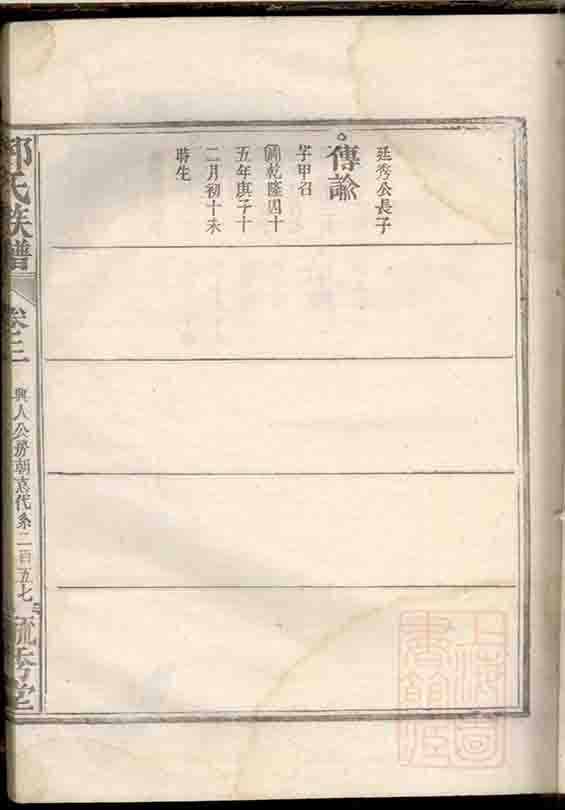 延秀公長子
傳諭
字甲召
乾隆四十
五年庚子十
二月初十未
時生
氏族譜
卷三
興人公房朝 代系二百五七
流秀堂
上海圖書館藏